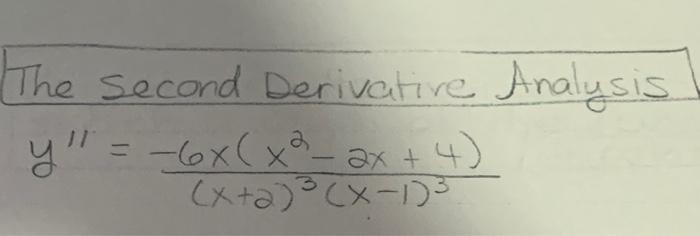 The Second Derivative Analysis
y'' = -6x(x² - 2x + 4)
(x+2)³(x-1)³